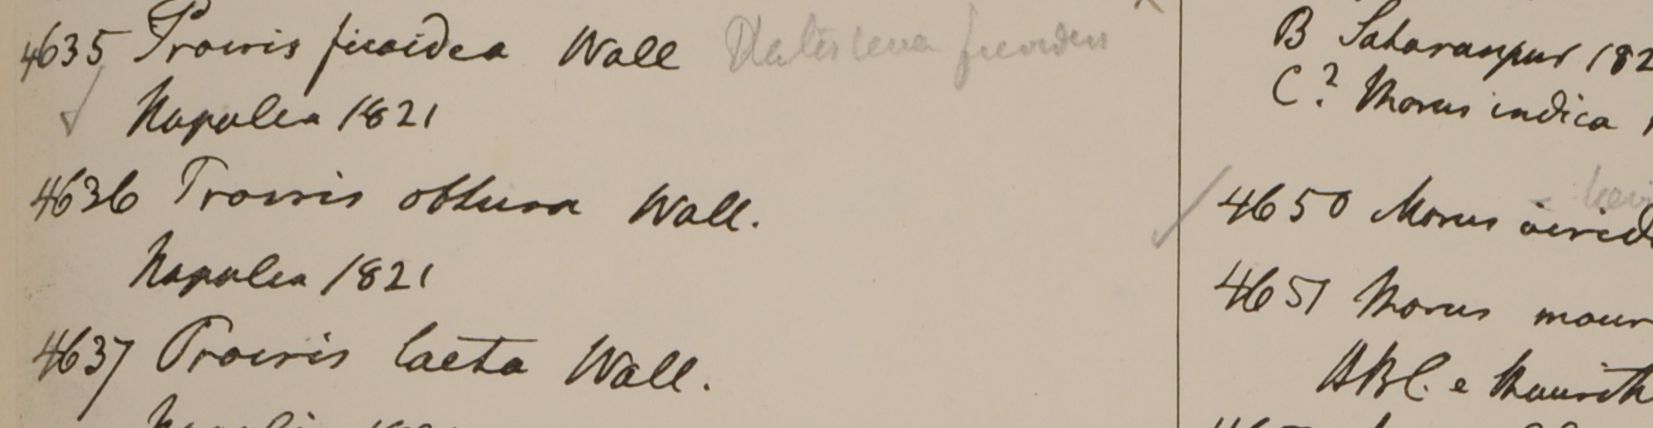 4635 Procris ficoidea Wall
Napalea 1821
4636 Procris obtusa Wall.
Napalea 1821
4637 Procris laeta Wall.
B Saharanpur 182
C? Morus indica
4650 Morus
4651 Morus maur
HBC. e Maurit